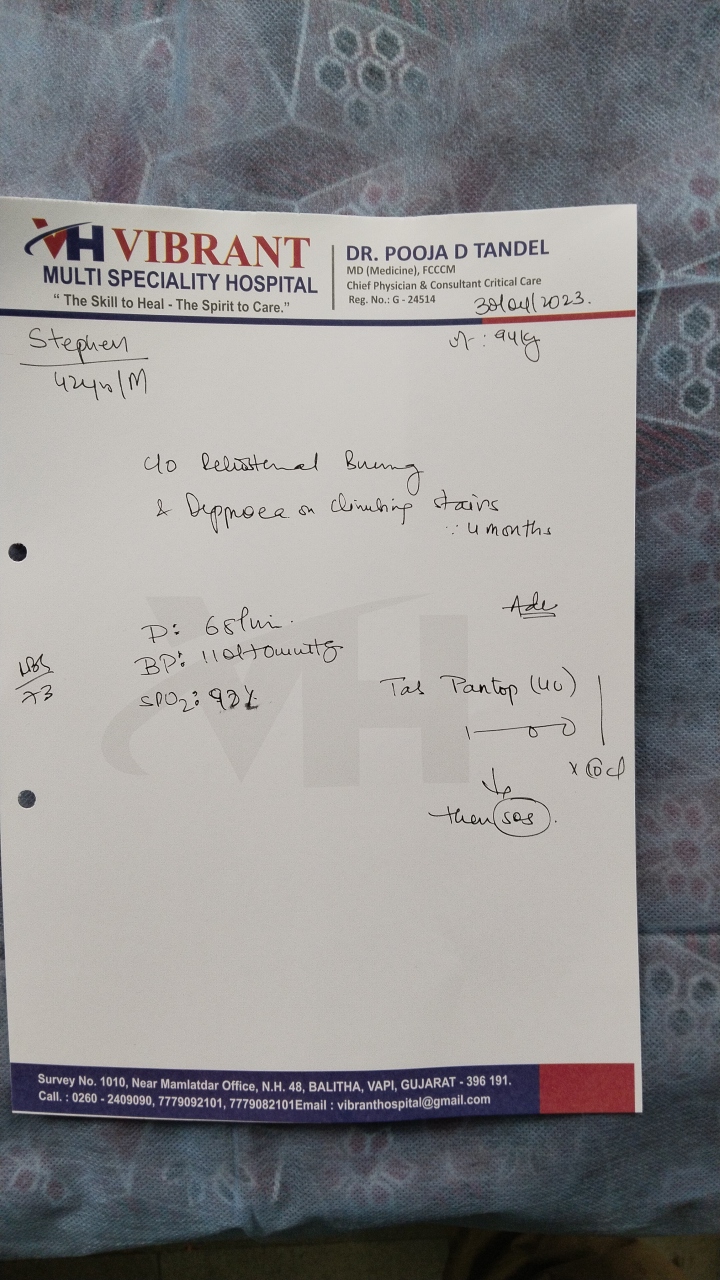 VH VIBRANT
MULTI SPECIALITY HOSPITAL
“ The Skill to Heal - The Spirit to Care.”
DR. POOJA D TANDEL
MD (Medicine), FCCCM
Chief Physician & Consultant Critical Care
Reg. No.: G - 24514
/2023.
Stephen
42yrs/M
: 94kg
c/o Retrosternal
& on climbing stairs
4 months
Adv
P: 68/min.
BP:
SPO2:
Tab Pantop (40)
1 — 0 — 0
x
↓
then sos.
VH
Survey No. 1010, Near Mamlatdar Office, N.H. 48, BALITHA, VAPI, GUJARAT - 396 191.
Call. : 0260 - 2409090, 7779092101, 7779082101Email : vibranthospital@gmail.com